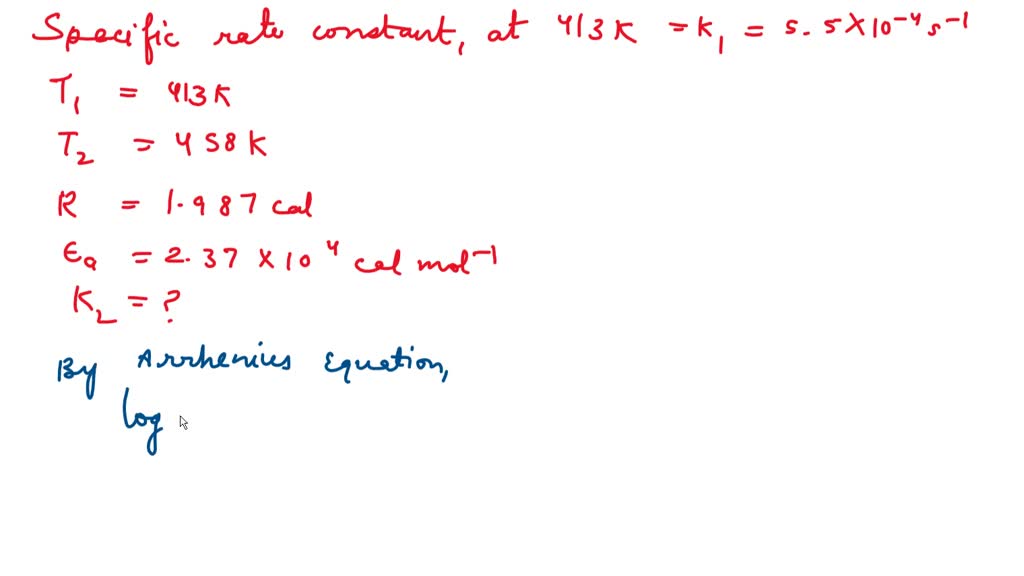 Specific rate constant, at 413 K = K₁ = 5.5 × 10⁻⁴ s⁻¹
T₁ = 413 K
T₂ = 458 K
R = 1.987 cal
Ea = 2.37 × 10⁴ cal mol⁻¹
K₂ = ?
By Arrhenius Equation,
log